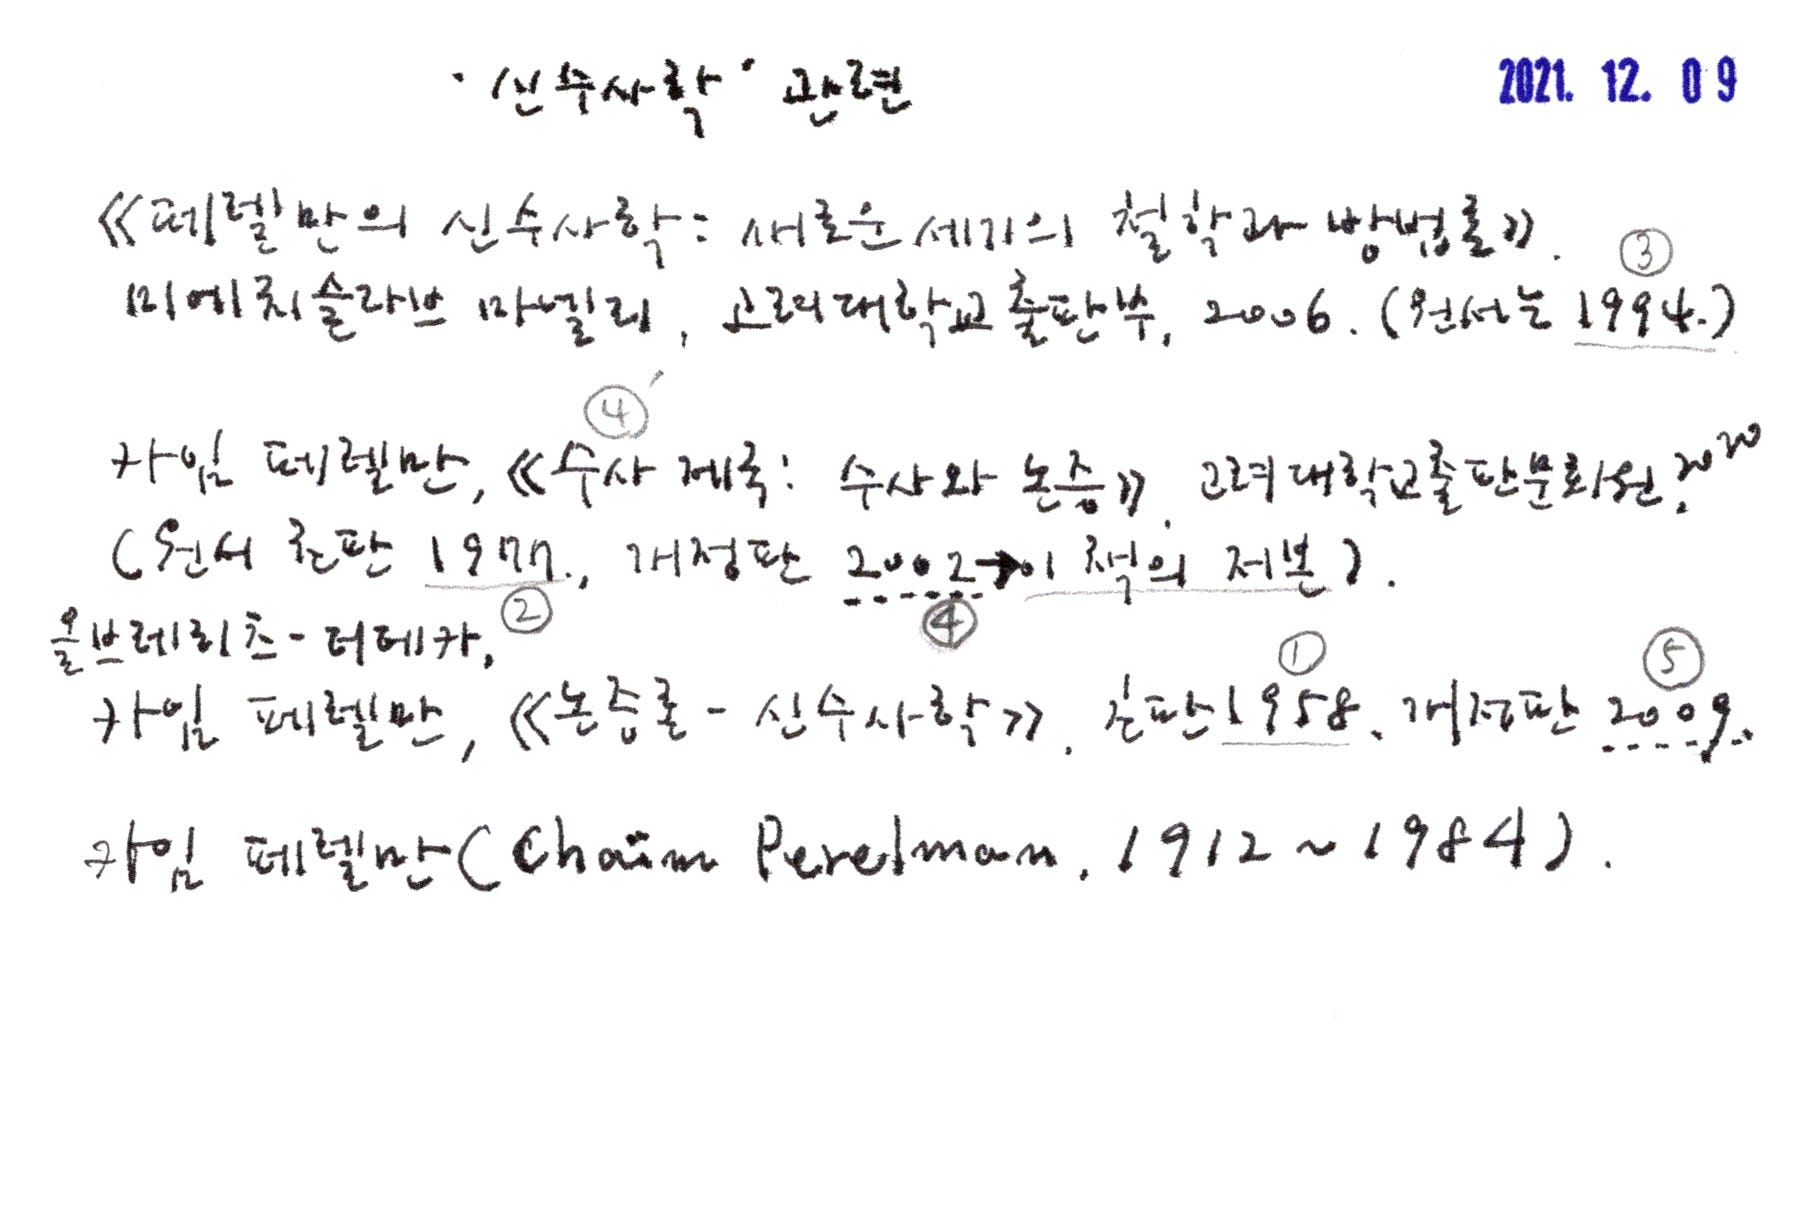 '신수사학' 관련
2021. 12. 09
《페렐만의 신수사학: 새로운 세기의 철학과 방법론》.
③
미에치슬라브 마넬리, 고려대학교출판부, 2006. (원서는 1994.)
④
카임 페렐만, 《수사 제국: 수사와 논증》, 고려대학교출판문화원, 2020
(원서 초판 1977., 개정판 2002→이 책의 저본).
② ④
올브레히츠-티테카,
① ⑤
카임 페렐만, 《논증론-신수사학》. 초판 1958. 개정판 2009.
카임 페렐만(Chaïm Perelman. 1912~1984).